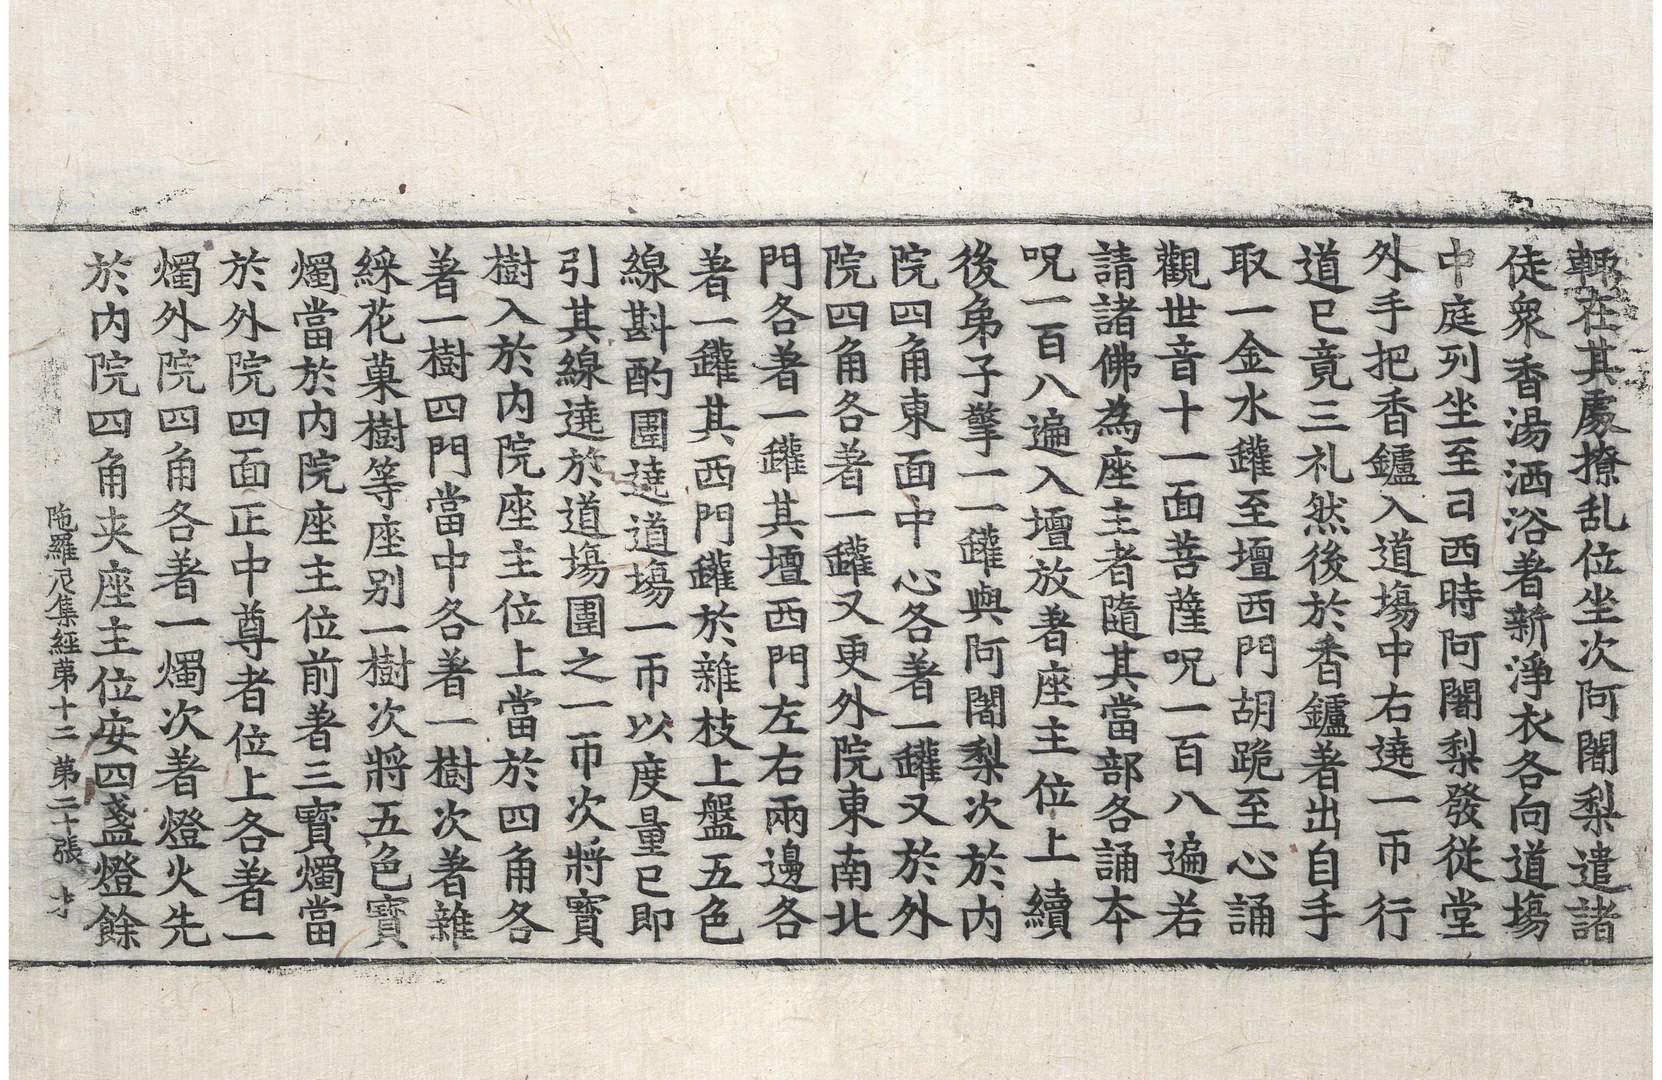 輙在其處撩乱位坐次阿闍梨遣諸
徒衆香湯洒浴著新淨衣各向道場
中庭列坐至日西時阿闍梨發從堂
外手把香鑪入道場中右遶一帀行
道已竟三礼然後於香鑪著出自手
取一金水罐至壇西門胡跪至心誦
觀世音十一面菩薩呪一百八遍若
請諸佛為座主者隨其當部各誦本
呪一百八遍入壇放著座主位上續
後弟子擎一一罐與阿闍梨次於內
院四角東面中心各著一罐又於外
院四角各著一罐又更外院東南北
門各著一罐其壇西門左右兩邊各
著一罐其西門罐於雜枝上盤五色
線斟酌圍遶道場一帀以度量已即
引其線遶於道場圍之一帀次將寶
樹入於內院座主位上當於四角各
著一樹四門當中各著一樹次著雜
綵花菓樹等座別一樹次將五色寶
燭當於內院座主位前著三寶燭當
於外院四面正中尊者位上各著一
燭外院四角各著一燭次著燈火先
於內院四角夾座主位安四盞燈餘
陁羅尼集經第十二 第二十張 才